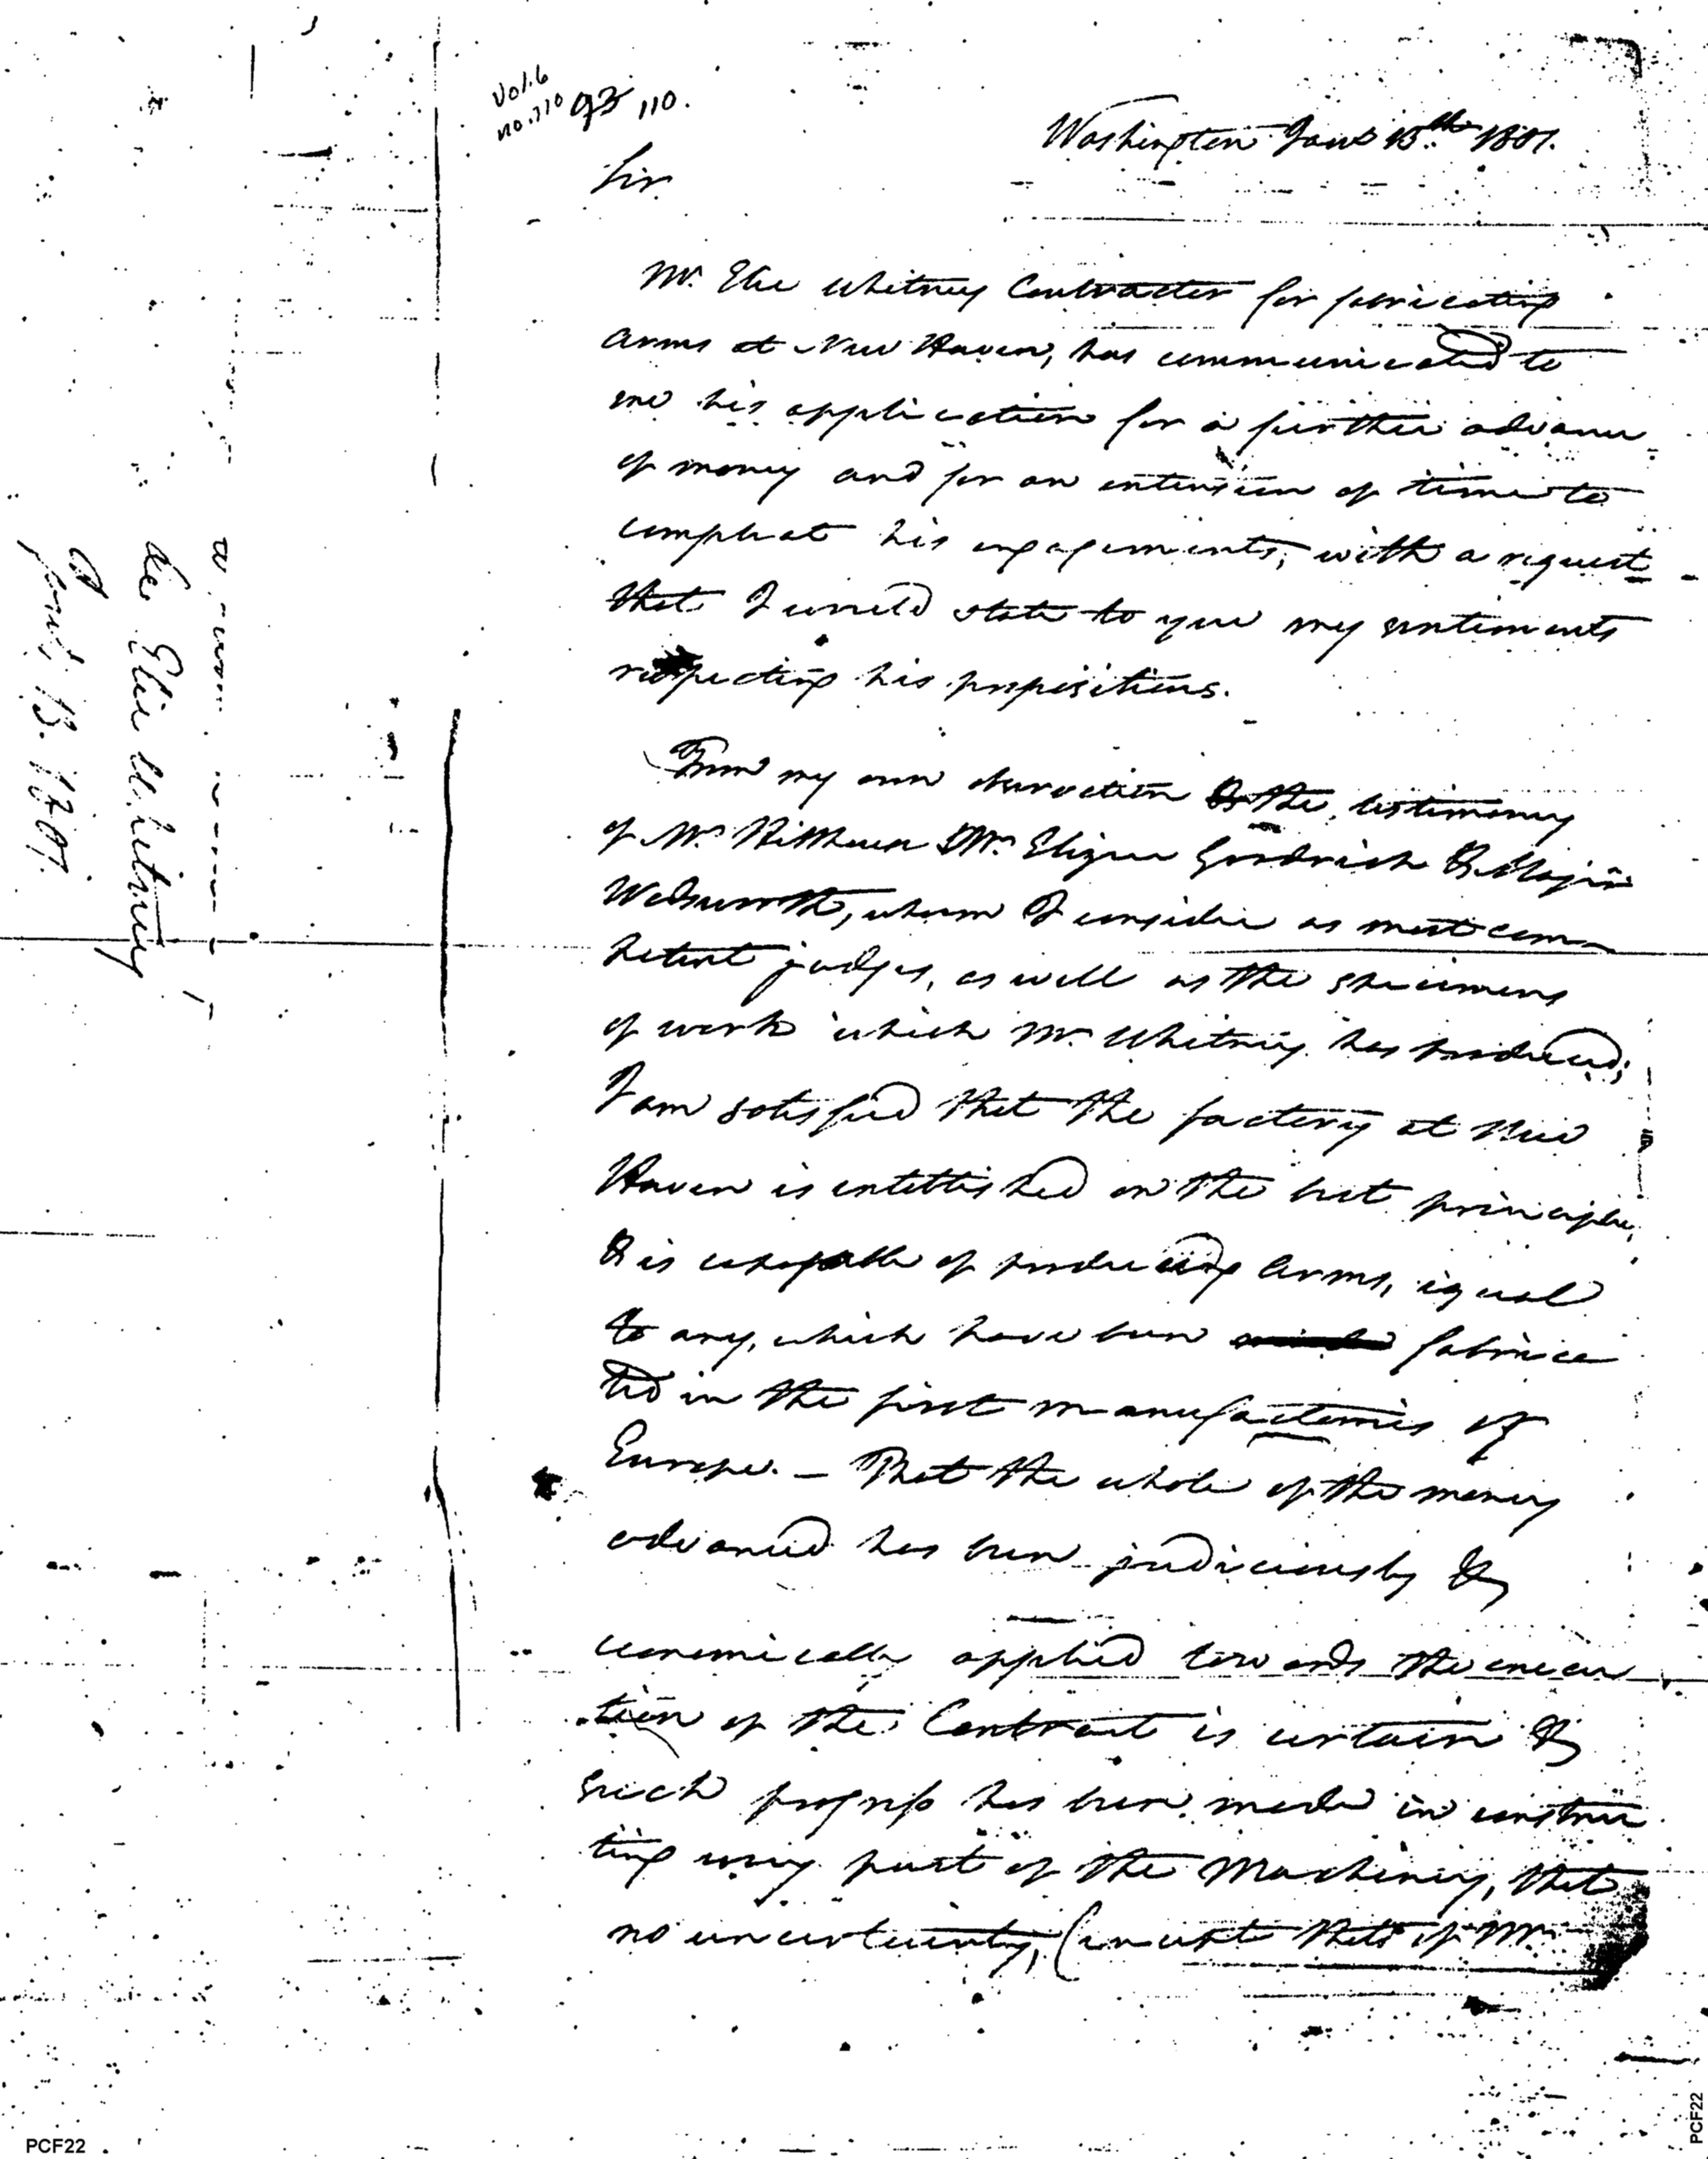 Vol. 6
no. 110 93 110.
Washington Jany 13th 1801.
Sir
Mr. Elie Whitney Contractor for fabricating
arms at New Haven, has communicated to
me his application for a further advance
of money and for an extension of time to
compleat his engagements, with a request
that I would state to you my sentiments
respecting his propositions.
From my own observation & the testimony
of Mr. Hillhouse Mr. Elizur Goodrich & Major
Wadsworth, whom I consider as most com-
petent judges, as well as the specimens
of work which Mr. Whitney has produced;
I am satisfied that the factory at New
Haven is established on the best principles,
& is capable of producing Arms, equal
to any, which have been fabrica
ted in the first manufactories of
Europe. — That the whole of the money
advanced has been judiciously &
economically applied towards the execu
tion of the Contract is certain &
such progress has been made in construc
ting every part of the Machinery, that
no uncertainty, (except that if Mr.
Elie Whitney
Jany 13. 1801.
PCF22
PCF22